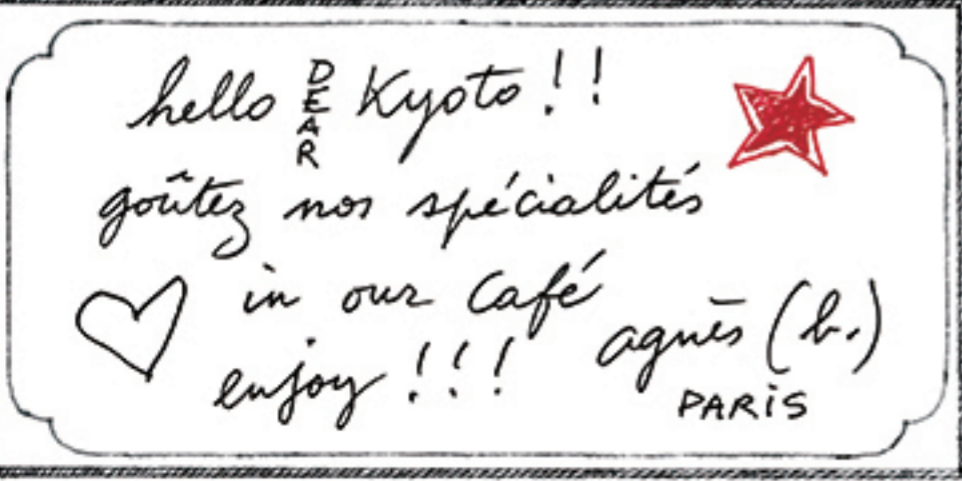 hello DEAR Kyoto !!
goûtez nos spécialités
in our Café
enjoy !!!
agnès (b.)
PARiS